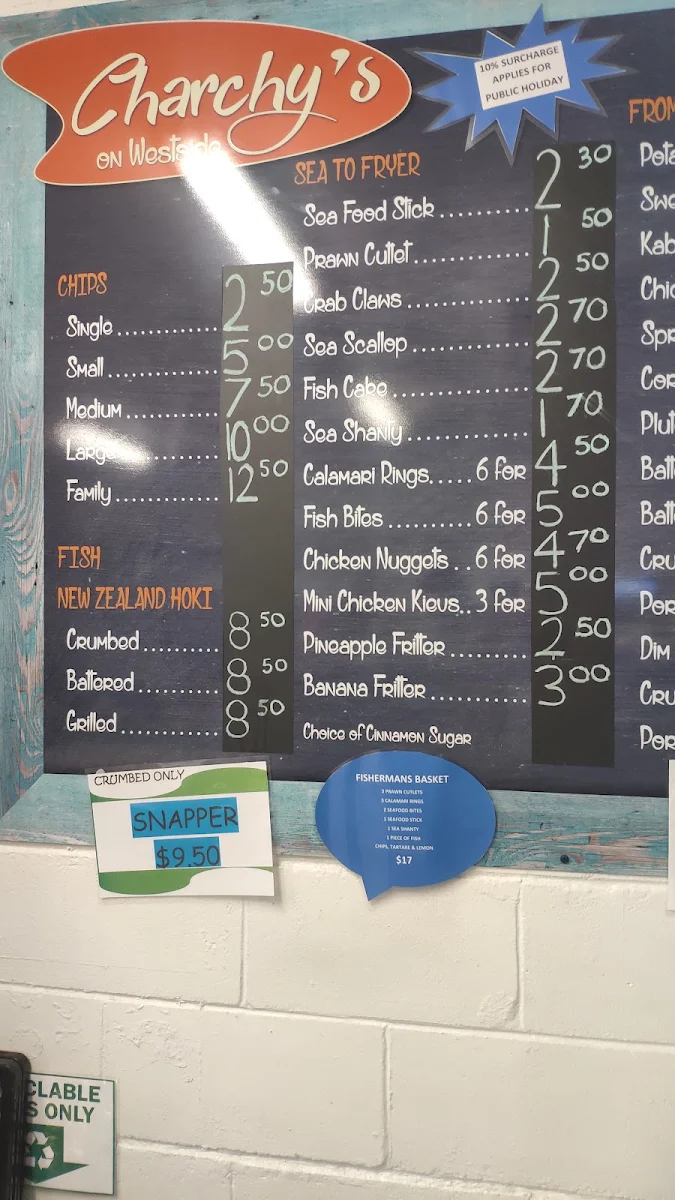 Charchy's
on Westside
10% SURCHARGE
APPLIES FOR
PUBLIC HOLIDAY
CHIPS
Single .............. 2 50
Small .............. 5 00
Medium .............. 7 50
Large .............. 10 00
Family .............. 12 50
FISH
NEW ZEALAND HOKI
Crumbed .......... 8 50
Battered .......... 8 50
Grilled .......... 8 50
SEA TO FRYER
Sea Food Stick .......... 2 30
Prawn Cutlet .......... 1 50
Crab Claws .......... 2 50
Sea Scallop .......... 2 70
Fish Cake .......... 2 70
Sea Shanty .......... 1 70
Calamari Rings..... 6 for 4 50
Fish Bites .......... 6 for 5 00
Chicken Nuggets .. 6 for 4 70
Mini Chicken Kievs.. 3 for 5 00
Pineapple Fritter .......... 2 50
Banana Fritter .......... 3 00
Choice of Cinnamon Sugar
CRUMBED ONLY
SNAPPER
$9.50
FISHERMANS BASKET
3 PRAWN CUTLETS
3 CALAMARI RINGS
2 SEAFOOD BITES
1 SEAFOOD STICK
1 SEA SHANTY
1 PIECE OF FISH
CHIPS, TARTARE & LEMON
$17
CLABLE
S ONLY